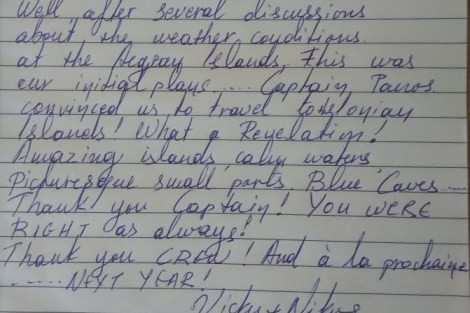 Well, after several discussions
about the weather conditions
at the Aegean Islands, this was
our initial plays.... Captain Panos
convinced us to travel to Ionian
Islands! What a Revelation!
Amazing islands, calm waters,
Picturesque small ports, Blue Caves....
Thank you Captain! YOU WERE
RIGHT as always!
Thank you CREW! And à la prochaine
...... NEXT YEAR!
Vicky + Nikos